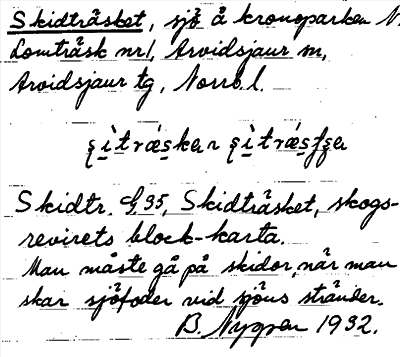 Skidträsket, sjö å kronoparken N.
Lomträsk nr1, Arvidsjaur sn,
Arvidsjaur tg, Norrb. l.
Skidtr. G 35, Skidträsket, skogs-
revirets block-karta.
Man måste gå på skidor, när man
skar sjöfoder vid sjöns stränder.
B. Nygren 1932.